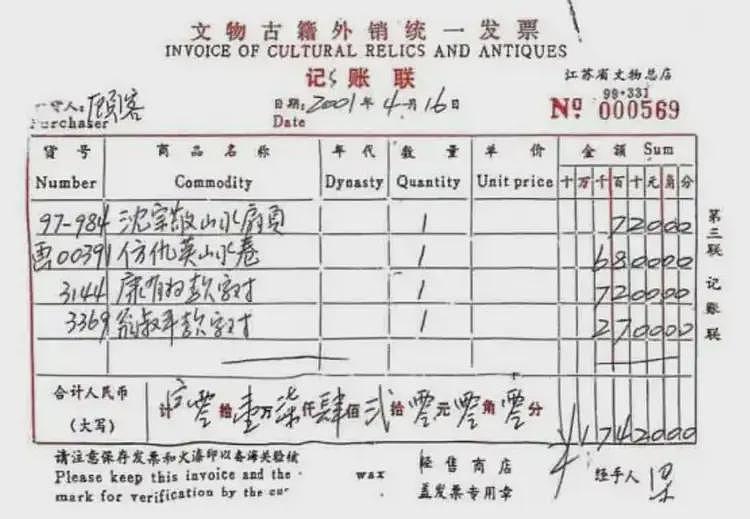 文物古籍外销统一发票
INVOICE OF CULTURAL RELICS AND ANTIQUES
记账联
江苏省文物总店
99·331
Purchaser 顾客
日期: 2001年4月16日
Date
No 000569
货号 商品名称 年代 数量 单价 金额 Sum
Number Commodity Dynasty Quantity Unit price 十万千百十元角分
97-984 沈宗敬山水扇页 1 72000
画00391 仿仇英山水卷 1 680000
3144 康有为款字对 1 720000
3369 翁叔平款字对 1 270000
合计人民币
(大写)
计零拾壹万柒仟肆佰弍拾零元零角零分 ¥1742000
第三联 记账联
请注意保存发票和火漆印以备海关验核
Please keep this invoice and the wax
mark for verification by the
经售商店
盖发票专用章
经手人 梁